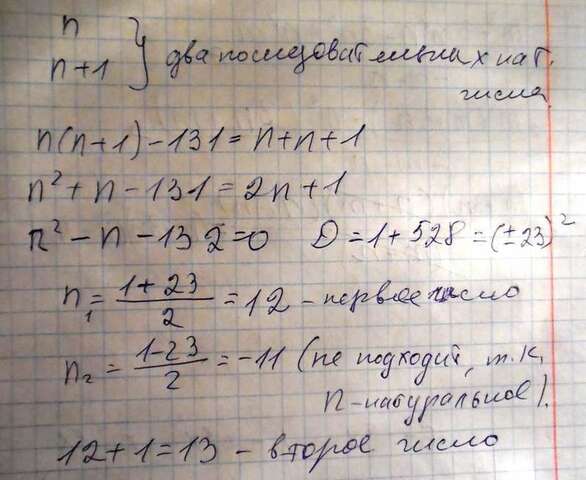 n
n+1 } два последовательных нат.
числа
n(n+1)-131=n+n+1
n²+n-131=2n+1
n²-n-132=0 D=1+528=(±23)²
n₁=(1+23)/2=12 - первое число
n₂=(1-23)/2=-11 (не подходит, т.к.
n-натуральное).
12+1=13 - второе число